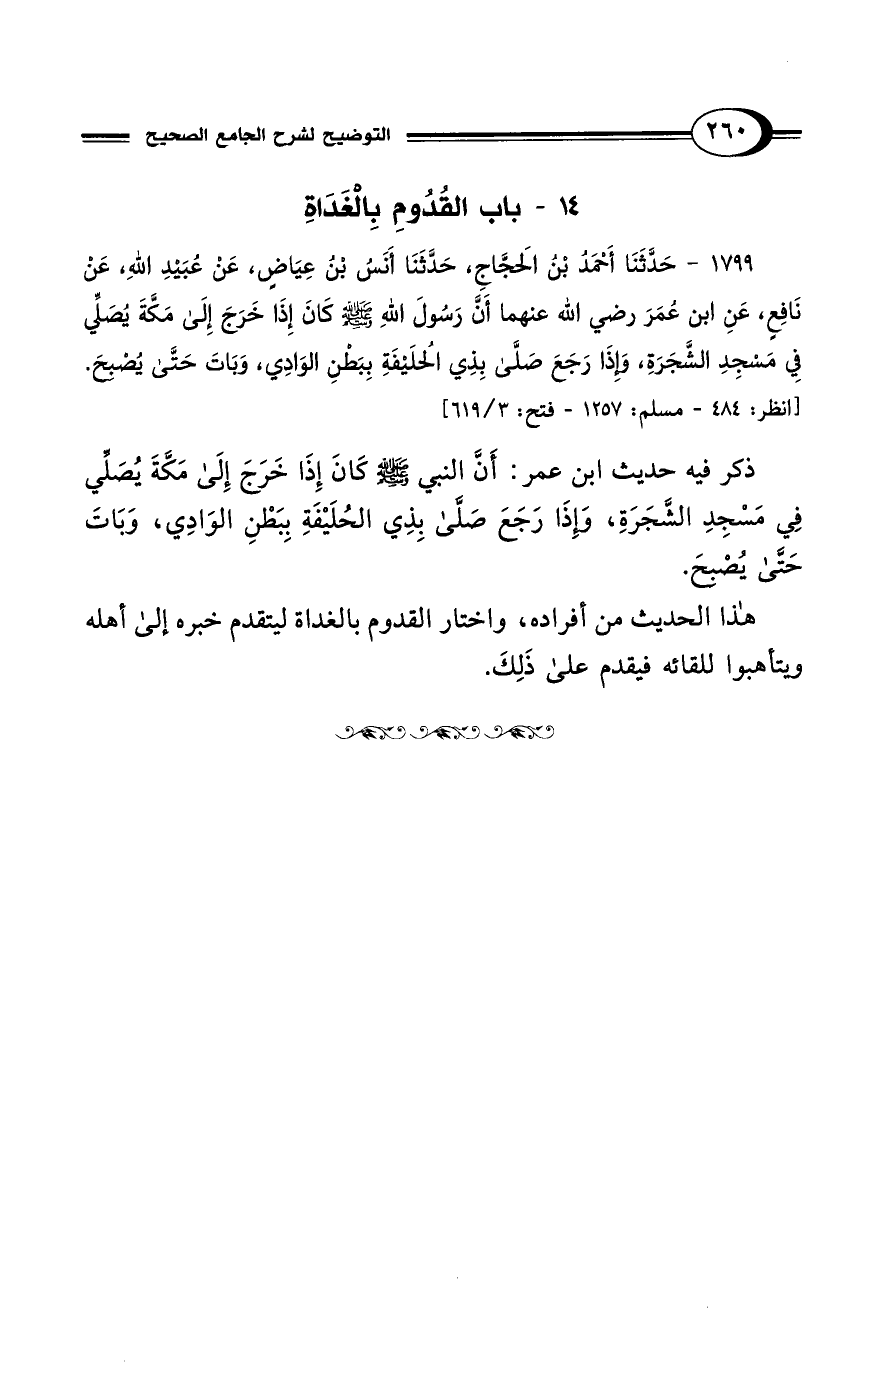 ٢٦٠ التوضيح لشرح الجامع الصحيح
١٤ - باب القُدُومِ بِالْغَدَاةِ
١٧٩٩ - حَدَّثَنَا أَحْمَدُ بْنُ الَحجَّاجِ، حَدَّثَنَا أَنَسُ بْنُ عِيَاضٍ، عَنْ عُبَيْدِ اللهِ، عَنْ
نَافِعٍ، عَنِ ابن عُمَرَ رضي الله عنهما أَنَّ رَسُولَ اللهِ ﷺ كَانَ إِذَا خَرَجَ إِلَىٰ مَكَّةَ يُصَلِّي
فِي مَسْجِدِ الشَّجَرَةِ، وَإِذَا رَجَعَ صَلَّىٰ بِذِي الُحلَيْفَةِ بِبَطْنِ الوَادِي، وَبَاتَ حَتَّىٰ يُصْبِحَ.
[انظر: ٤٨٤ - مسلم: ١٢٥٧ - فتح: ٦١٩/٣]
ذكر فيه حديث ابن عمر: أَنَّ النبي ﷺ كَانَ إِذَا خَرَجَ إِلَىٰ مَكَّةَ يُصَلِّي
فِي مَسْجِدِ الشَّجَرَةِ، وَإِذَا رَجَعَ صَلَّىٰ بِذِي الحُلَيْفَةِ بِبَطْنِ الوَادِي، وَبَاتَ
حَتَّىٰ يُصْبِحَ.
هذا الحديث من أفراده، واختار القدوم بالغداة ليتقدم خبره إلىٰ أهله
ويتأهبوا للقائه فيقدم علىٰ ذَلِكَ.